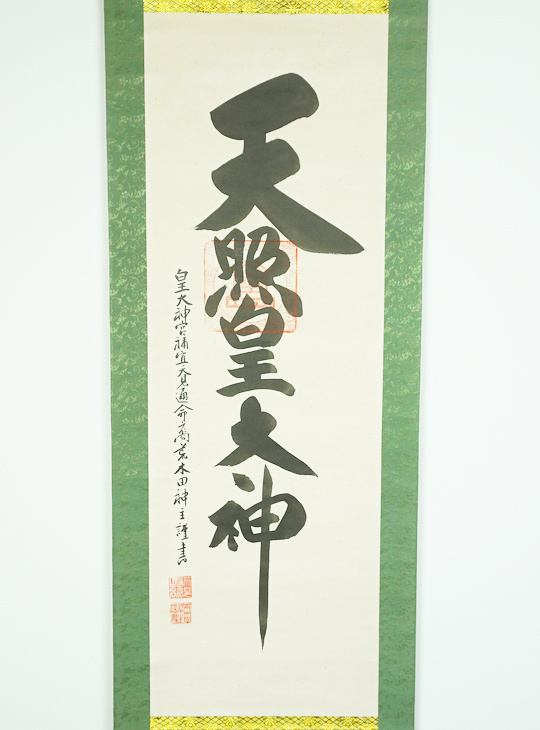 天照皇大神
皇大神宮禰宜大見通命裔荒木田神主謹書